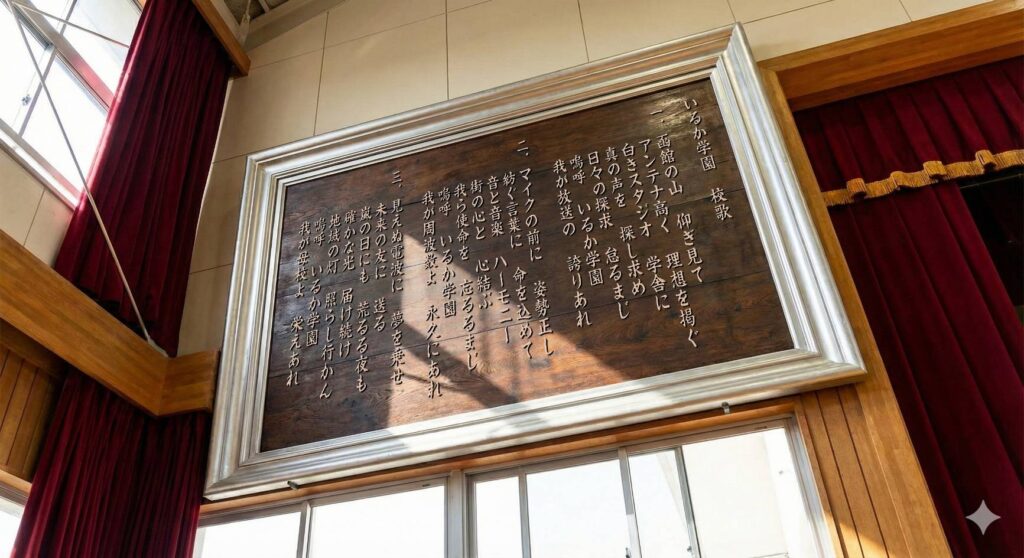 いるか学園 校歌
一、函館の山 仰き見て
アンテナ高く 理想を掲ぐ
白きスタジオ 学舎に
真の声を 探し求め
日々の探求 怠るまじ
嗚呼 いるか学園
我が放送の 誇りあれ
二、マイクの前に 姿勢正し
紡ぐ言葉に 命を込めて
音と音楽 ハーモニー
街の心と 心結ぶ
我ら使命を 忘るるまじ
嗚呼 いるか学園
我が周波数よ 永久にあれ
三、見えぬ電波に 夢を乗せ
未来の友に 送る
嵐の日にも 荒るる夜も
確かな光 届け続け
地域の灯 照らし行かん
嗚呼 いるか学園
我が母校よ 栄えあれ